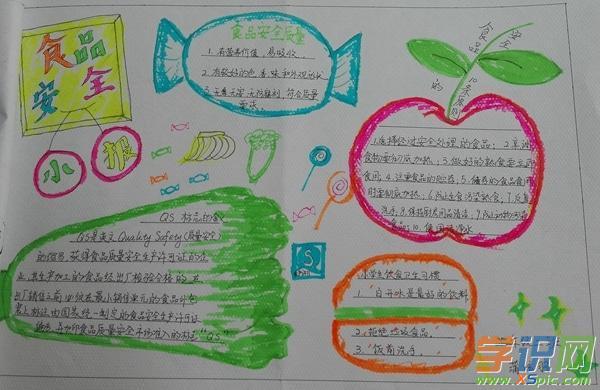 食品
安全
小报
食品安全质量
1. 有营养价值，易吸收。
2. 有较好的色、香、味和外观形状
3. 无毒、无害、无污染剂，符合质量
要求。
食品安全的10条原则
1.选择经过安全处理的食品；2.某些
食物要彻底加热；3.做好的熟食要立即
食用；4.注意食品的贮藏；5.储存的食品食用
时要彻底加热；6.防止生食污染熟食；7.反复
洗手；8.保持厨房用品清洁；9.防止动物污染
食品；10.使用纯净水。
QS 标志的含义
QS是英文Quality Safety(质量安全)
的缩写，获得食品质量安全生产许可证的企
业，其生产加工的食品经出厂检验合格的，在
出厂销售之前，必须在最小销售单元的食品外包
装上标注由国家统一制定的食品质量安全生产许可证
编号，并加印食品质量安全市场准入的标志"QS"。
S
小学生饮食卫生习惯
1. 白开水是最好的饮料
2. 拒绝垃圾食品。
3. 饭前洗手。
学识网
www.XSpic.com